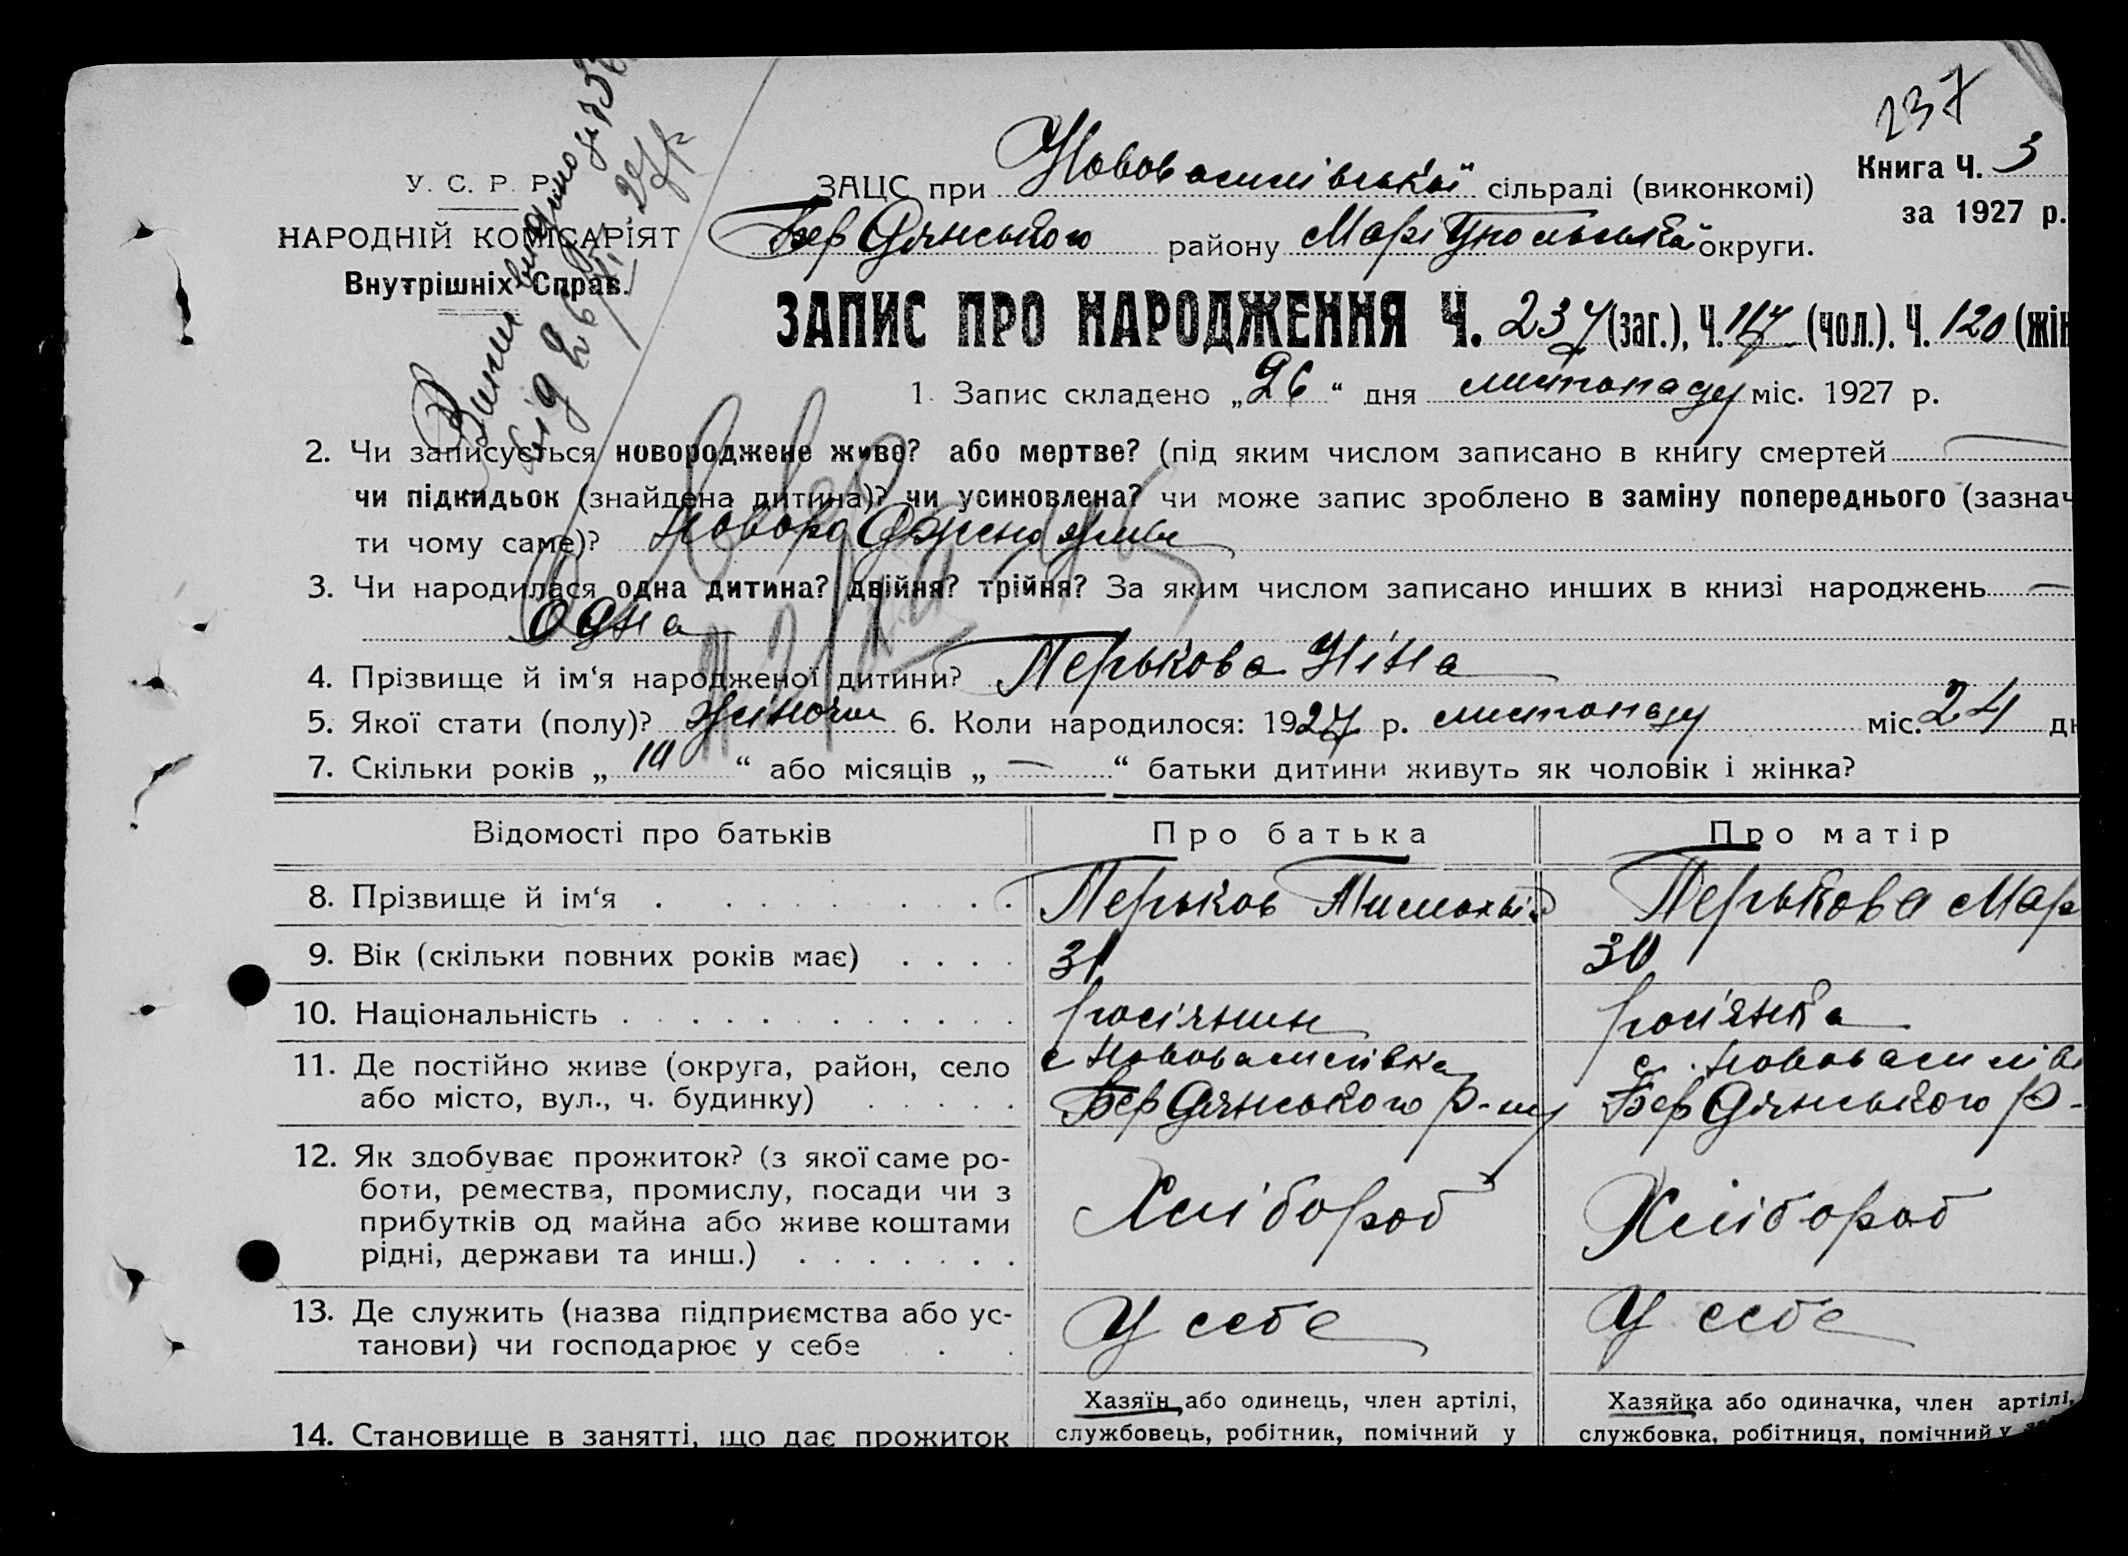 237
Книга Ч. 3
за 1927 р.
У. С. Р. Р.
НАРОДНІЙ КОМІСАРІЯТ
Внутрішніх Справ.
Випис видано за
від 26/XI 27 р
ЗАЦС при Нововасилівської сільраді (виконкомі)
Бердянського району Маріупольської округи.
ЗАПИС ПРО НАРОДЖЕННЯ Ч. 237 (заг.), Ч. 117 (чол.). Ч. 120 (жін
1. Запис складено „26“ дня листопаду міс. 1927 р.
2. Чи записується новороджене живе? або мертве? (під яким числом записано в книгу смертей —
чи підкидьок (знайдена дитина)? чи усиновлена? чи може запис зроблено в заміну попереднього (зазнач
ти чому саме)? новороджено живим
3. Чи народилася одна дитина? двійня? трійня? За яким числом записано инших в книзі народжень —
одна
4. Прізвище й ім‘я народженої дитини? Перькова Ніна
5. Якої стати (полу)? жіночої 6. Коли народилося: 1927 р. листопаду міс. 24 дн
7. Скільки років „10“ або місяців „—“ батьки дитини живуть як чоловік і жінка?
Відомості про батьків Про батька Про матір
8. Прізвище й ім‘я Перьков Тимохвій Перькова Мар
9. Вік (скільки повних років має) 31 30
10. Національність росіянин росіянка
11. Де постійно живе (округа, район, село с Нововасилівка с. Нововасилів
або місто, вул., ч. будинку) Бердянського р-ну Бердянського р-
12. Як здобуває прожиток? (з якої саме ро-
боти, ремества, промислу, посади чи з Хлібороб Хлібороб
прибутків од майна або живе коштами
рідні, держави та инш.)
13. Де служить (назва підприємства або ус- У себе У себе
танови) чи господарює у себе
Хазяїн або одинець, член артілі, Хазяйка або одиначка, член артілі,
14. Становище в занятті, що дає прожиток службовець, робітник, помічний у службовка, робітниця, помічний у